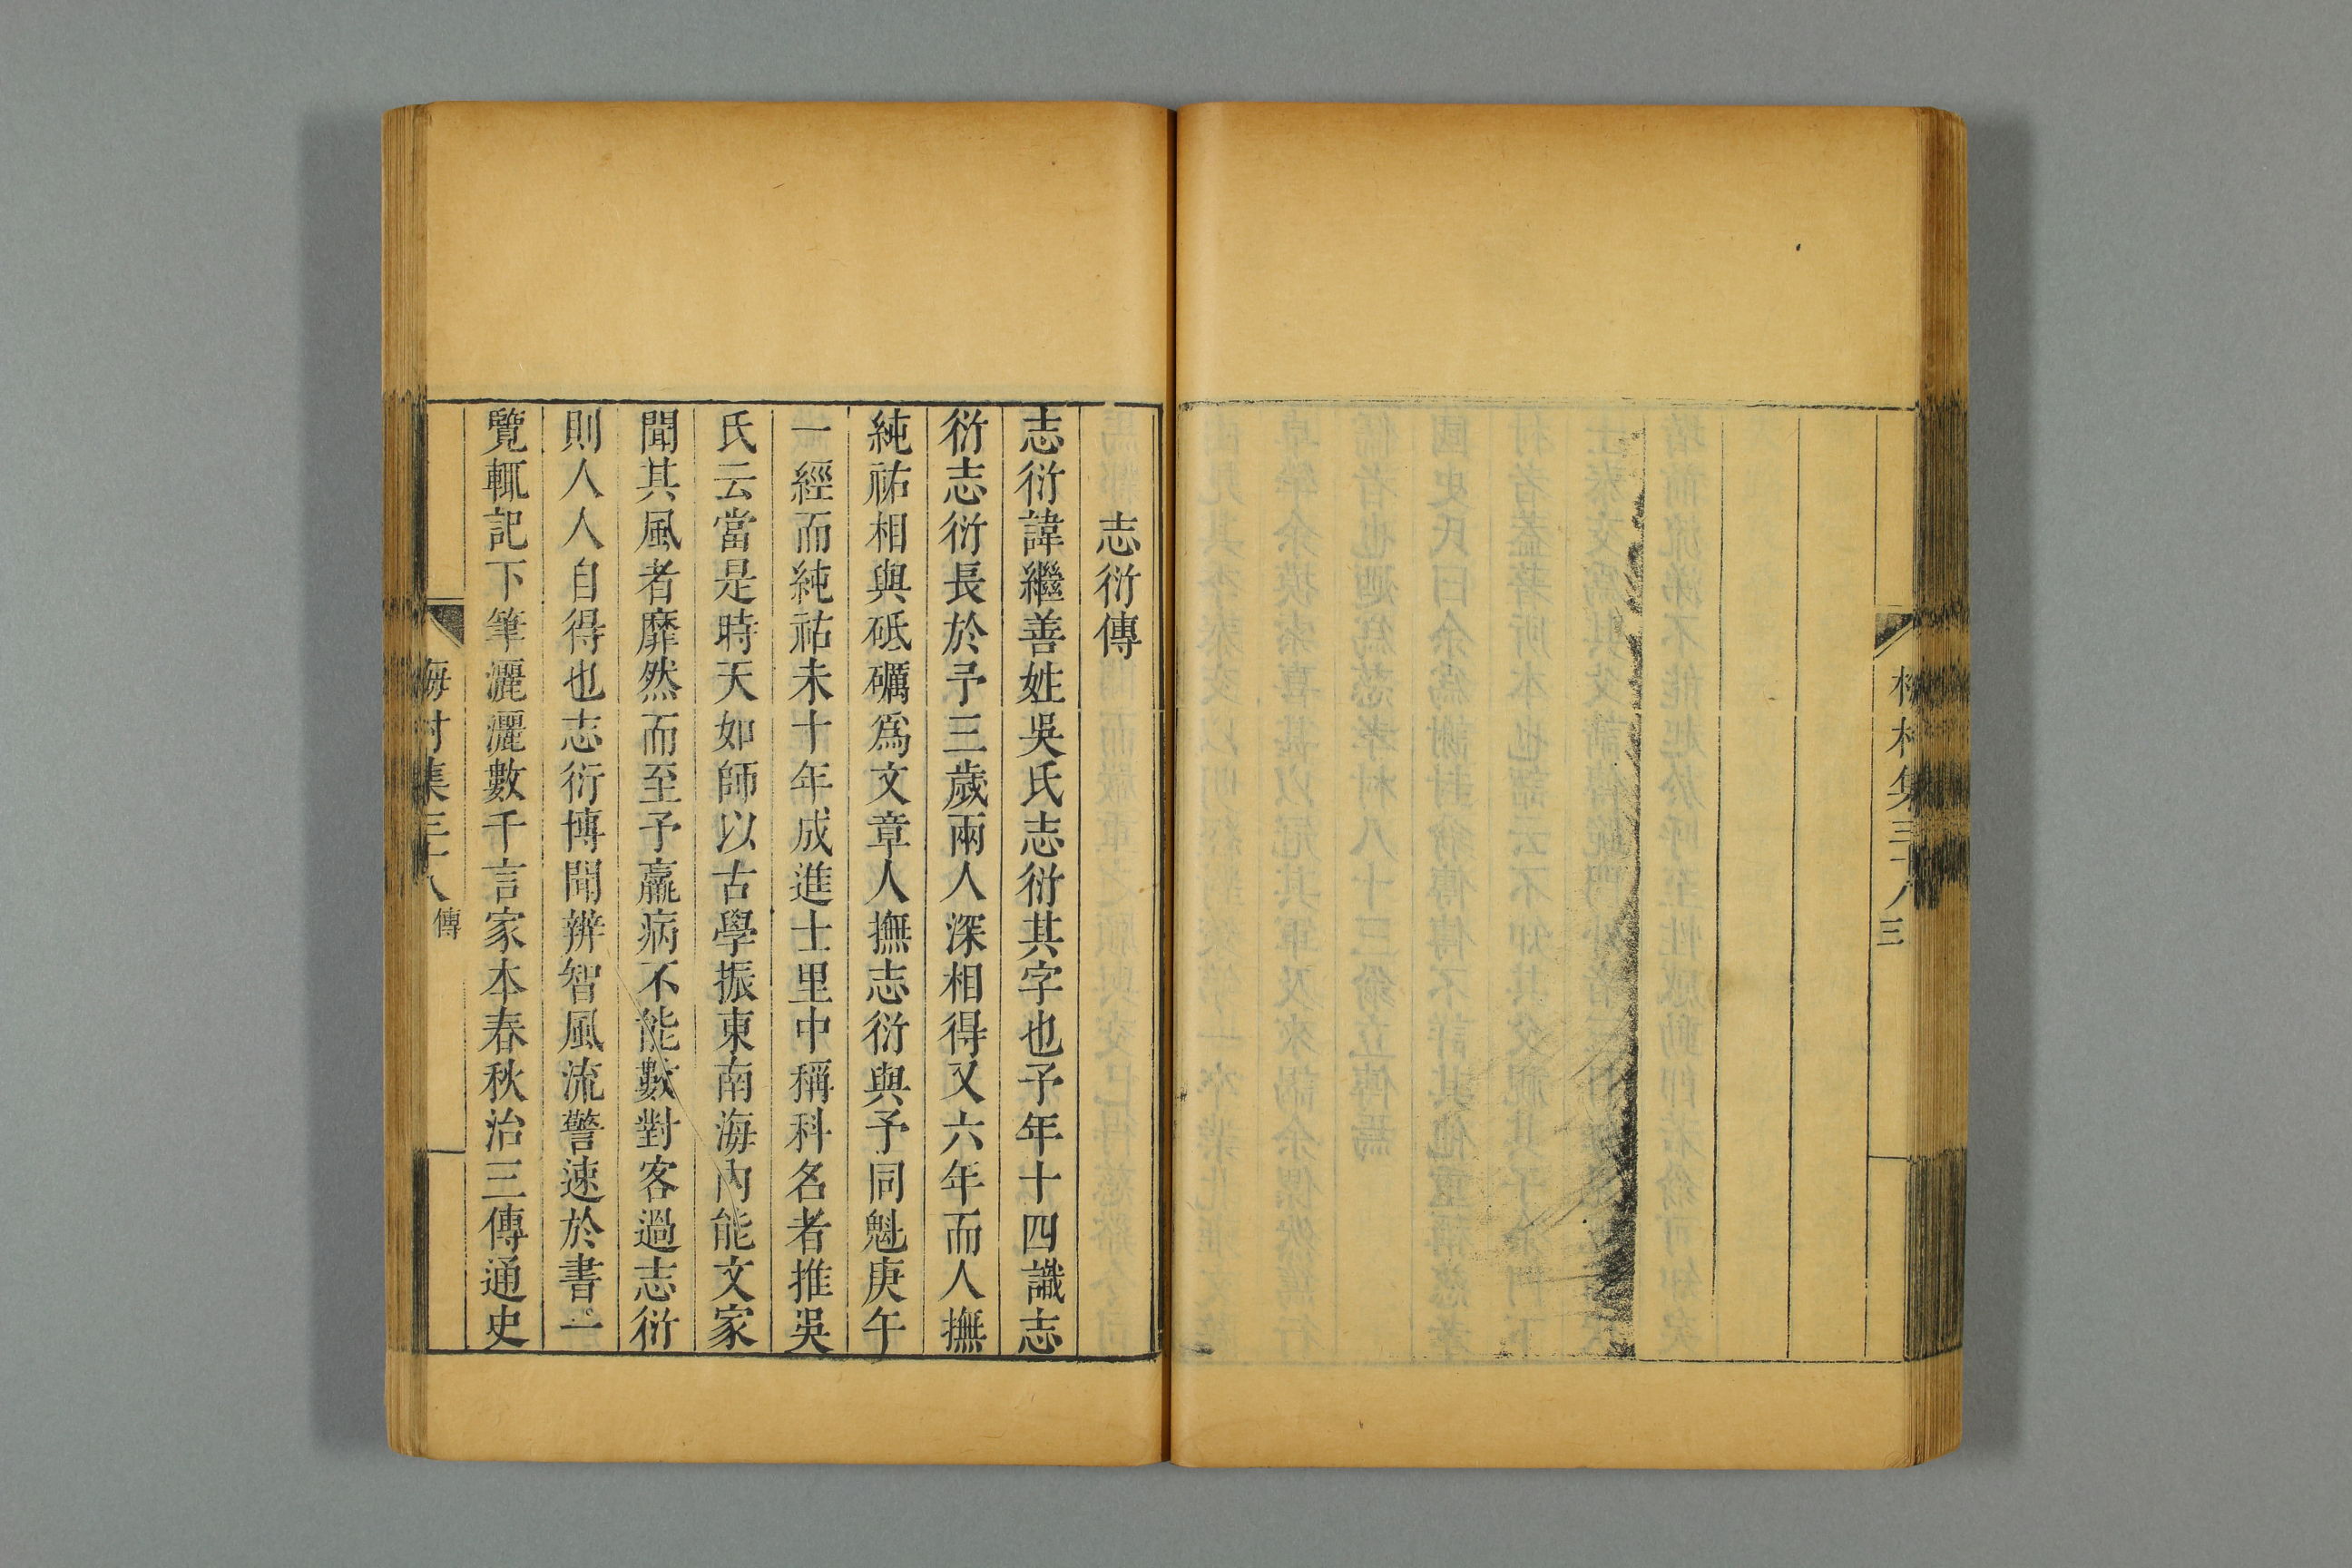 梅村集三十八
三
志衍傳
志衍諱繼善姓吳氏志衍其字也予年十四識志
衍志衍長於予三歲兩人深相得又六年而人撫
純祐相與砥礪爲文章人撫志衍與予同魁庚午
一經而純祐未十年成進士里中稱科名者推吳
氏云當是時天如師以古學振東南海內能文家
聞其風者靡然而至予羸病不能數對客過志衍
則人人自得也志衍博聞辨智風流警速於書一
覽輒記下筆灑灑數千言家本春秋治三傳通史
梅村集三十八
傳